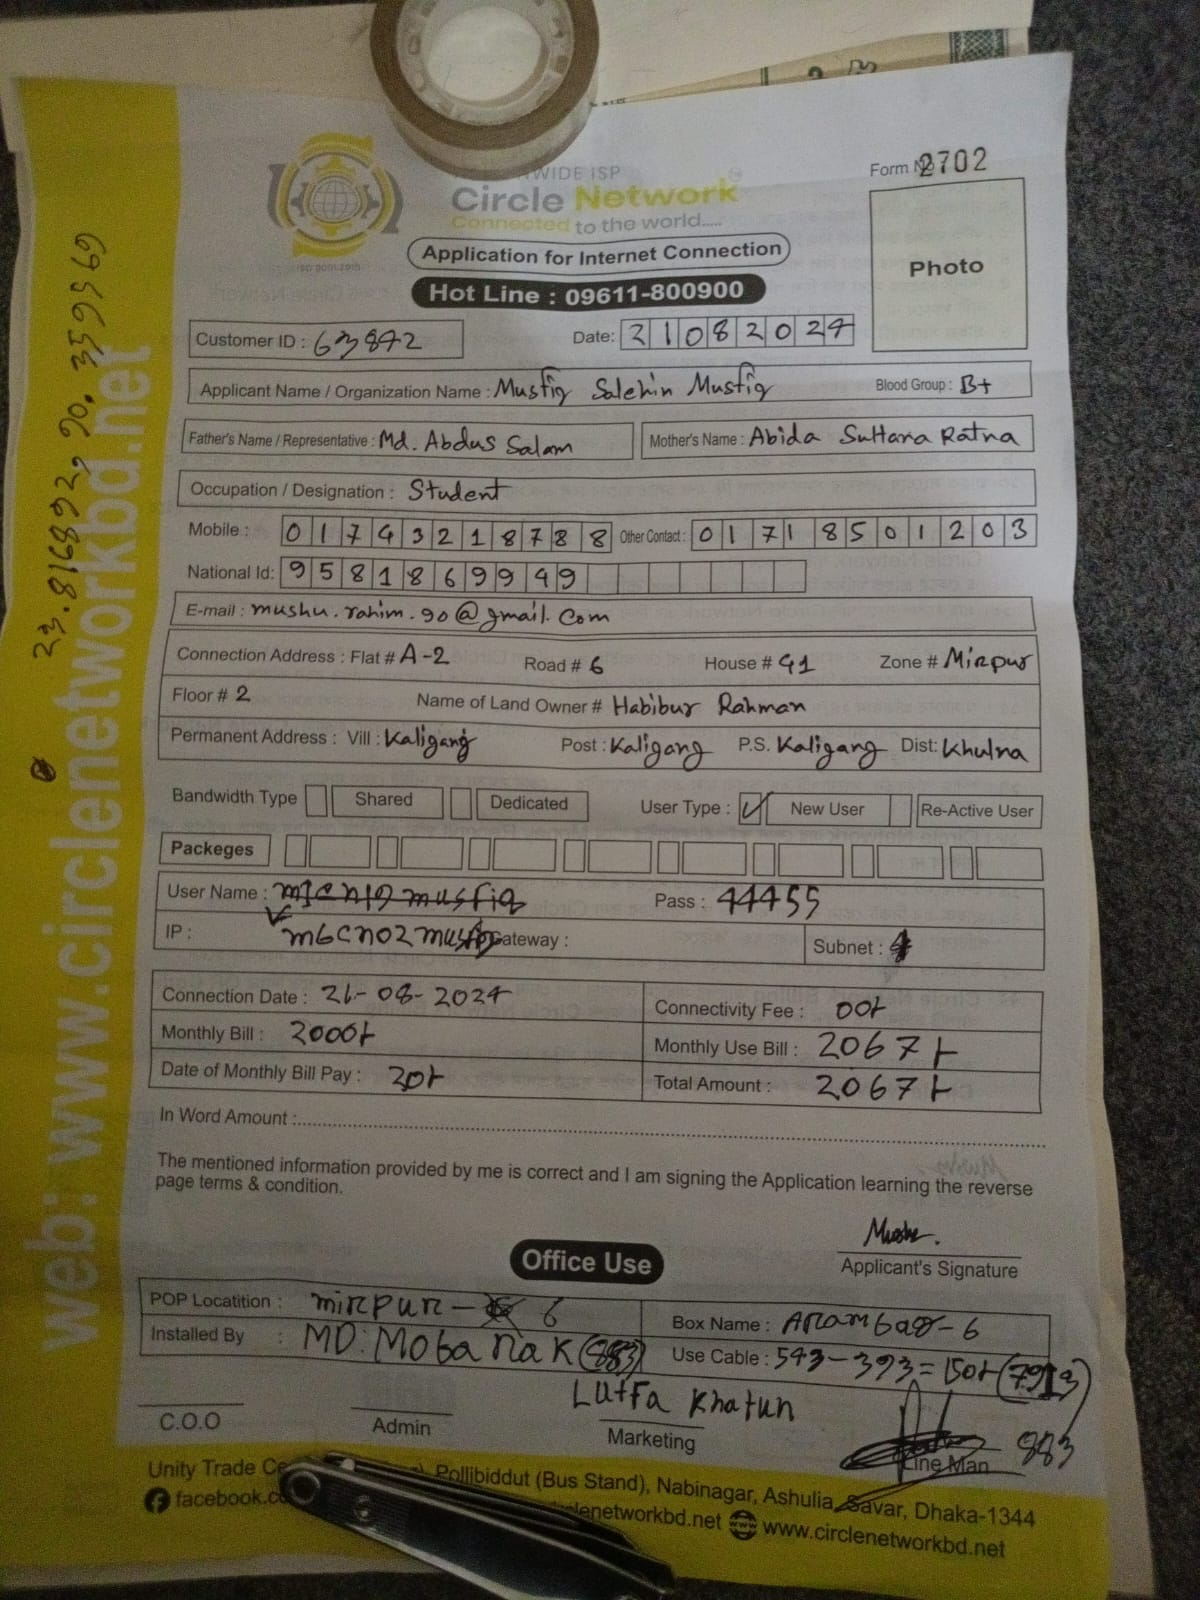 WIDE ISP
Circle Network
Connected to the world.....
Form No 2702
Photo
Application for Internet Connection
Hot Line : 09611-800900
Customer ID : 63872
Date: 21082024
Applicant Name / Organization Name : Musfiq Salehin Musfiq Blood Group : B+
Father's Name / Representative : Md. Abdus Salam Mother's Name : Abida Sultana Ratna
Occupation / Designation : Student
Mobile : 01743218788 Other Contact : 01718501203
National Id: 9581869949
E-mail : mushu.rahim.90@gmail.com
Connection Address : Flat # A-2 Road # 6 House # 41 Zone # Mirpur
Floor # 2 Name of Land Owner # Habibur Rahman
Permanent Address : Vill : Kaliganj Post : Kaliganj P.S. Kaliganj Dist: Khulna
Bandwidth Type Shared Dedicated User Type : New User Re-Active User
Packeges
User Name : Pass : 44455
IP : m6cno2musfiq Gateway : Subnet :
Connection Date : 21-08-2024 Connectivity Fee : 00৳
Monthly Bill : 2000৳ Monthly Use Bill : 2067৳
Date of Monthly Bill Pay : 20৳ Total Amount : 2067৳
In Word Amount :
The mentioned information provided by me is correct and I am signing the Application learning the reverse
page terms & condition.
Applicant's Signature
Office Use
POP Locatition : mirpur - 6 Box Name : Arambag-6
Installed By : MD: Mobarak (883) Use Cable : 543-393=150৳ (7913)
Lutfa Khatun
C.O.O Admin Marketing Line Man 883
Unity Trade Pollibiddut (Bus Stand), Nabinagar, Ashulia, Savar, Dhaka-1344
facebook.co www.circlenetworkbd.net
web: www.circlenetworkbd.net